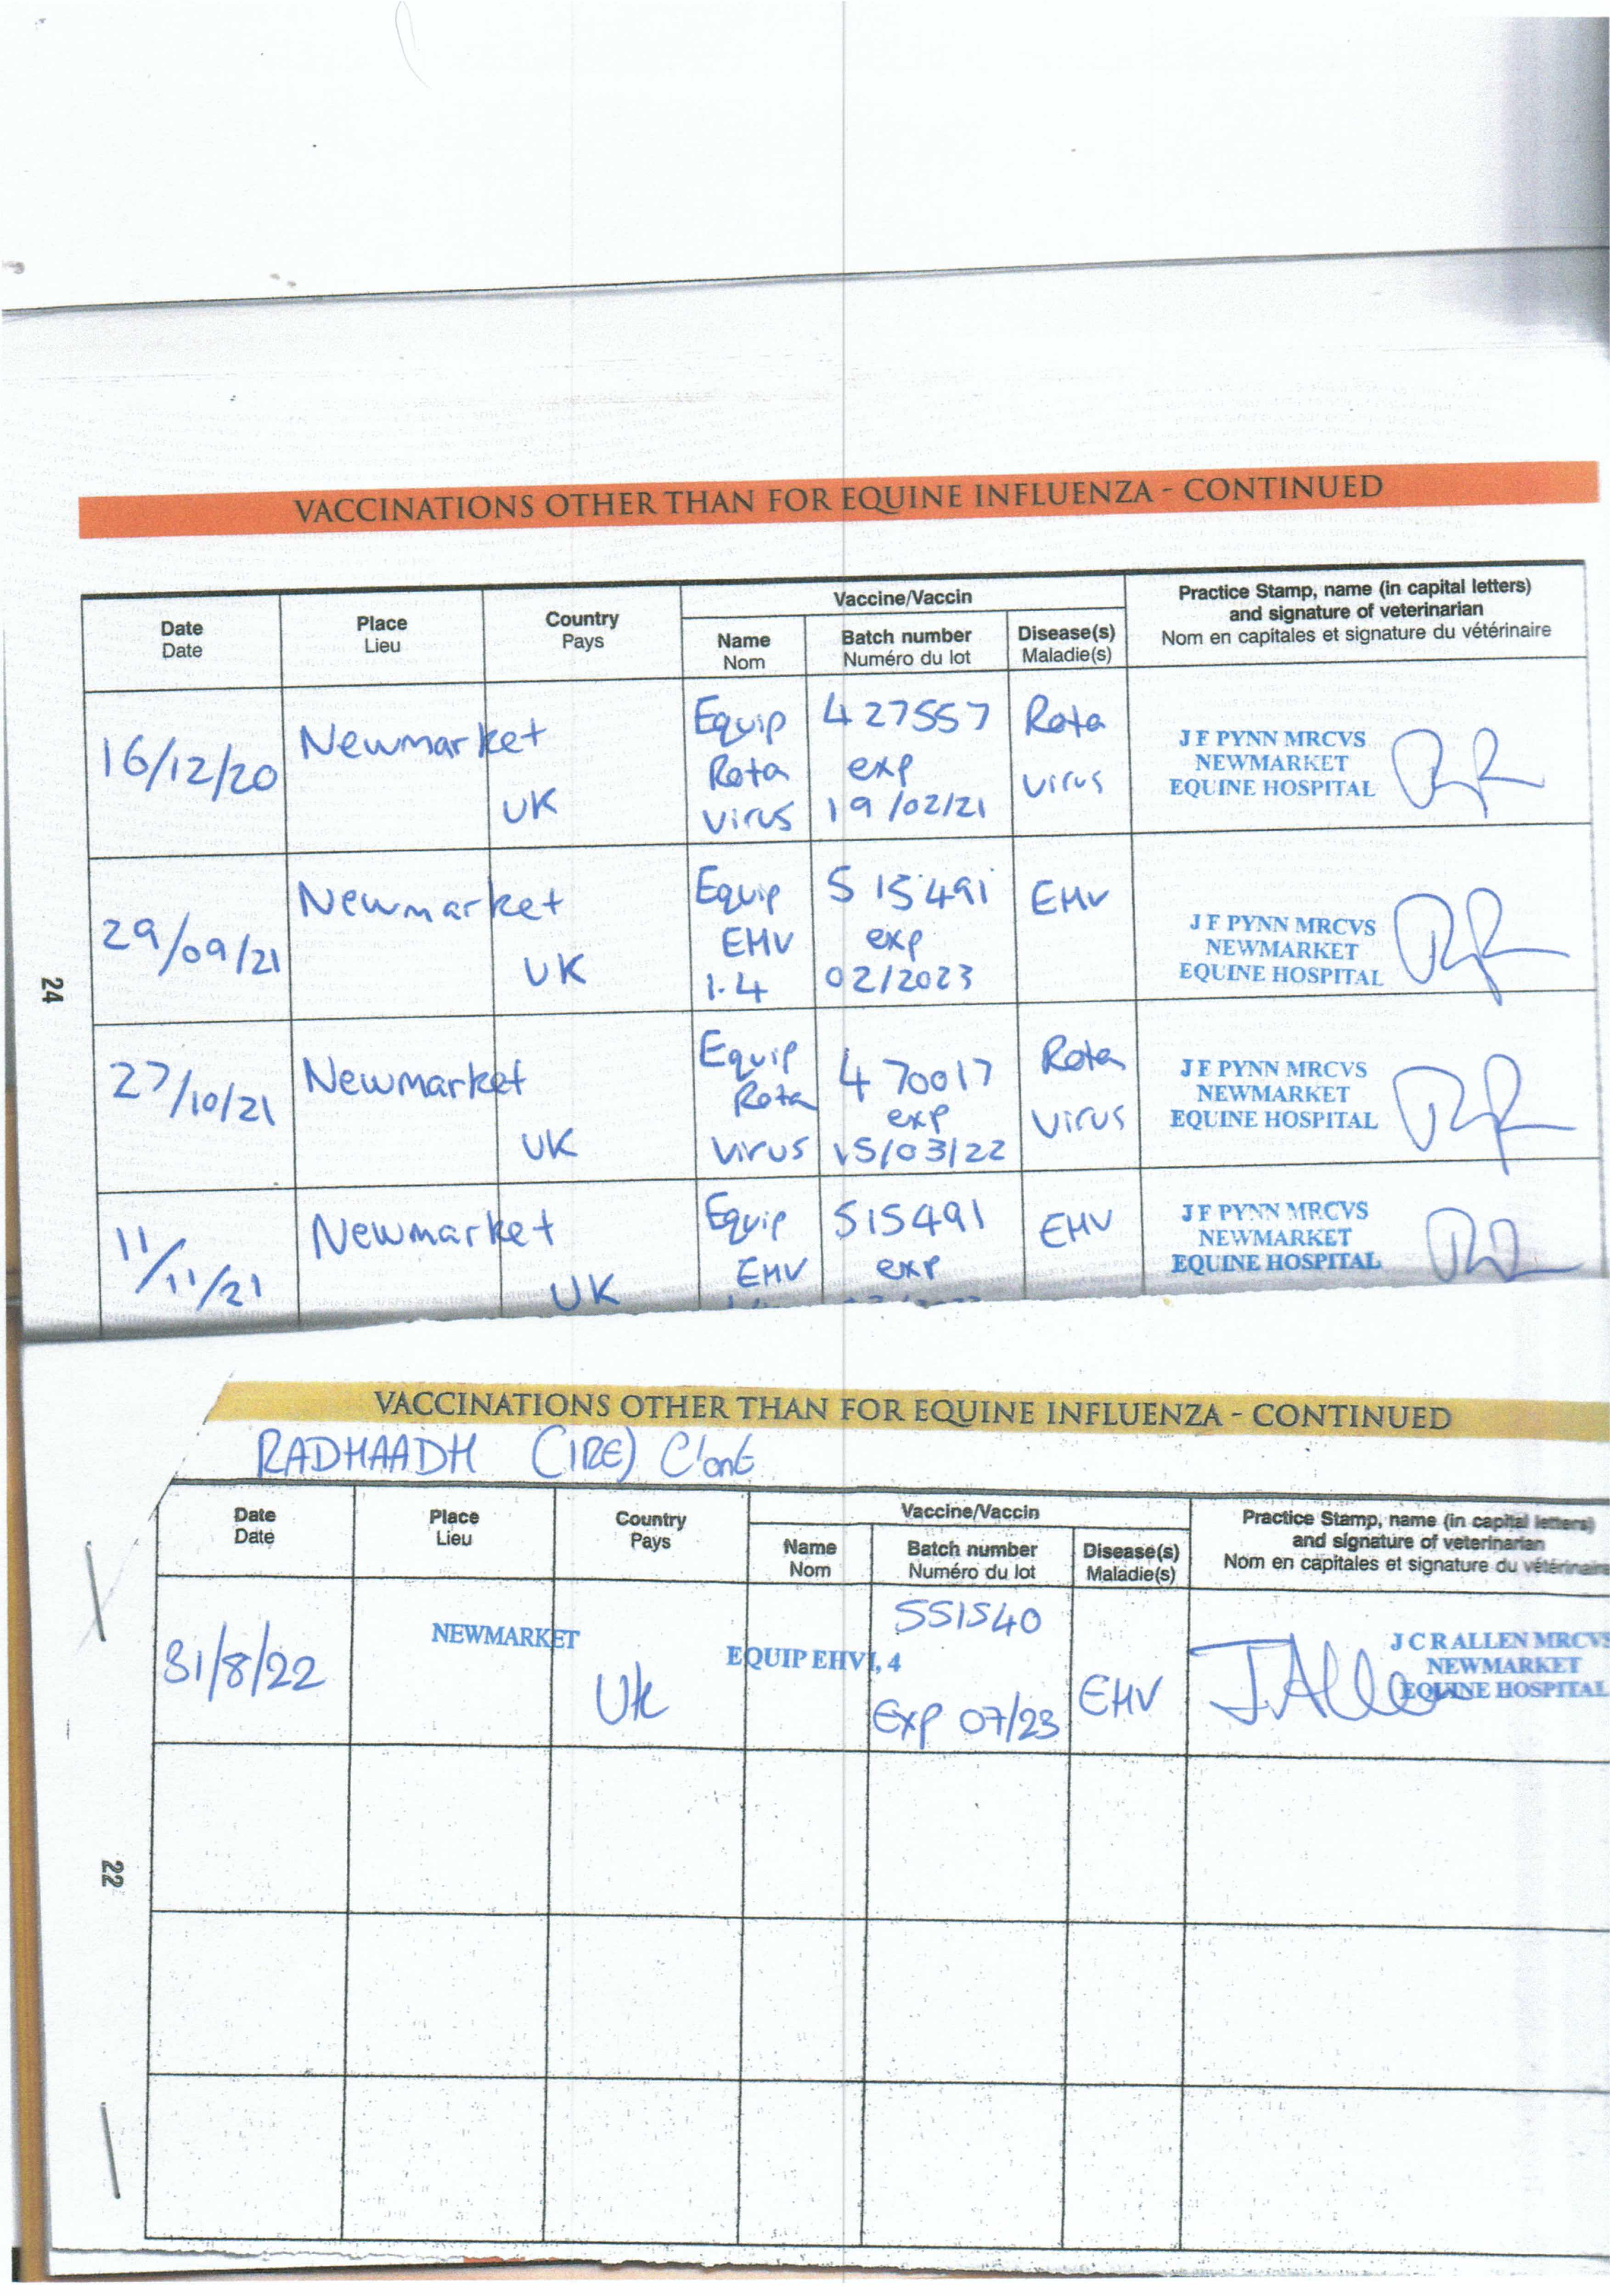 VACCINATIONS OTHER THAN FOR EQUINE INFLUENZA - CONTINUED
Date
Date
Place
Lieu
Country
Pays
Vaccine/Vaccin
Name
Nom
Batch number
Numéro du lot
Disease(s)
Maladie(s)
Practice Stamp, name (in capital letters)
and signature of veterinarian
Nom en capitales et signature du vétérinaire
16/12/20
Newmarket
UK
Equip
Rota
Virus
427557
exp
19/02/21
Rota
Virus
J F PYNN MRCVS
NEWMARKET
EQUINE HOSPITAL
29/09/21
Newmarket
UK
Equip
EHV
1.4
515491
exp
02/2023
EHV
J F PYNN MRCVS
NEWMARKET
EQUINE HOSPITAL
27/10/21
Newmarket
UK
Equip
Rota
Virus
470017
exp
15/03/22
Rota
Virus
J F PYNN MRCVS
NEWMARKET
EQUINE HOSPITAL
11/11/21
Newmarket
UK
Equip
EHV
515491
exp
EHV
J F PYNN MRCVS
NEWMARKET
EQUINE HOSPITAL
24
VACCINATIONS OTHER THAN FOR EQUINE INFLUENZA - CONTINUED
RADHAADH (IRE) C'ont
Date
Date
Place
Lieu
Country
Pays
Vaccine/Vaccin
Name
Nom
Batch number
Numéro du lot
Disease(s)
Maladie(s)
Practice Stamp, name (in capital letters)
and signature of veterinarian
Nom en capitales et signature du vétérinaire
31/8/22
NEWMARKET
UK
EQUIP EHV 1, 4
551540
Exp 07/23
EHV
J.Allen
J C R ALLEN MRCVS
NEWMARKET
EQUINE HOSPITAL
22